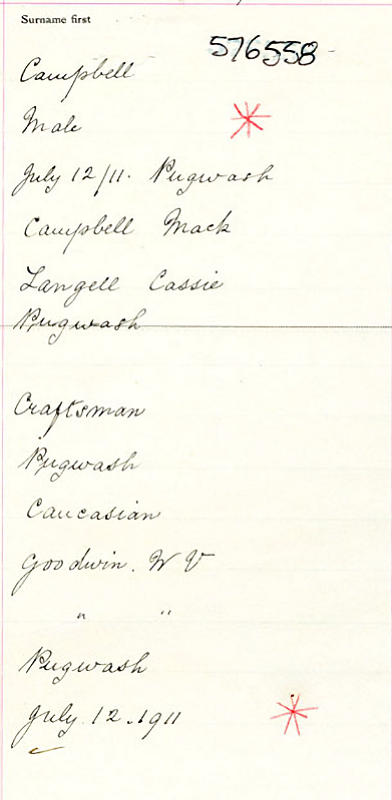 Surname first
576558
Campbell
Male
July 12/11. Pugwash
Campbell Mack
Langell Cassie
Pugwash
Craftsman
Pugwash
Caucasian
Goodwin. W V
" "
Pugwash
July 12. 1911